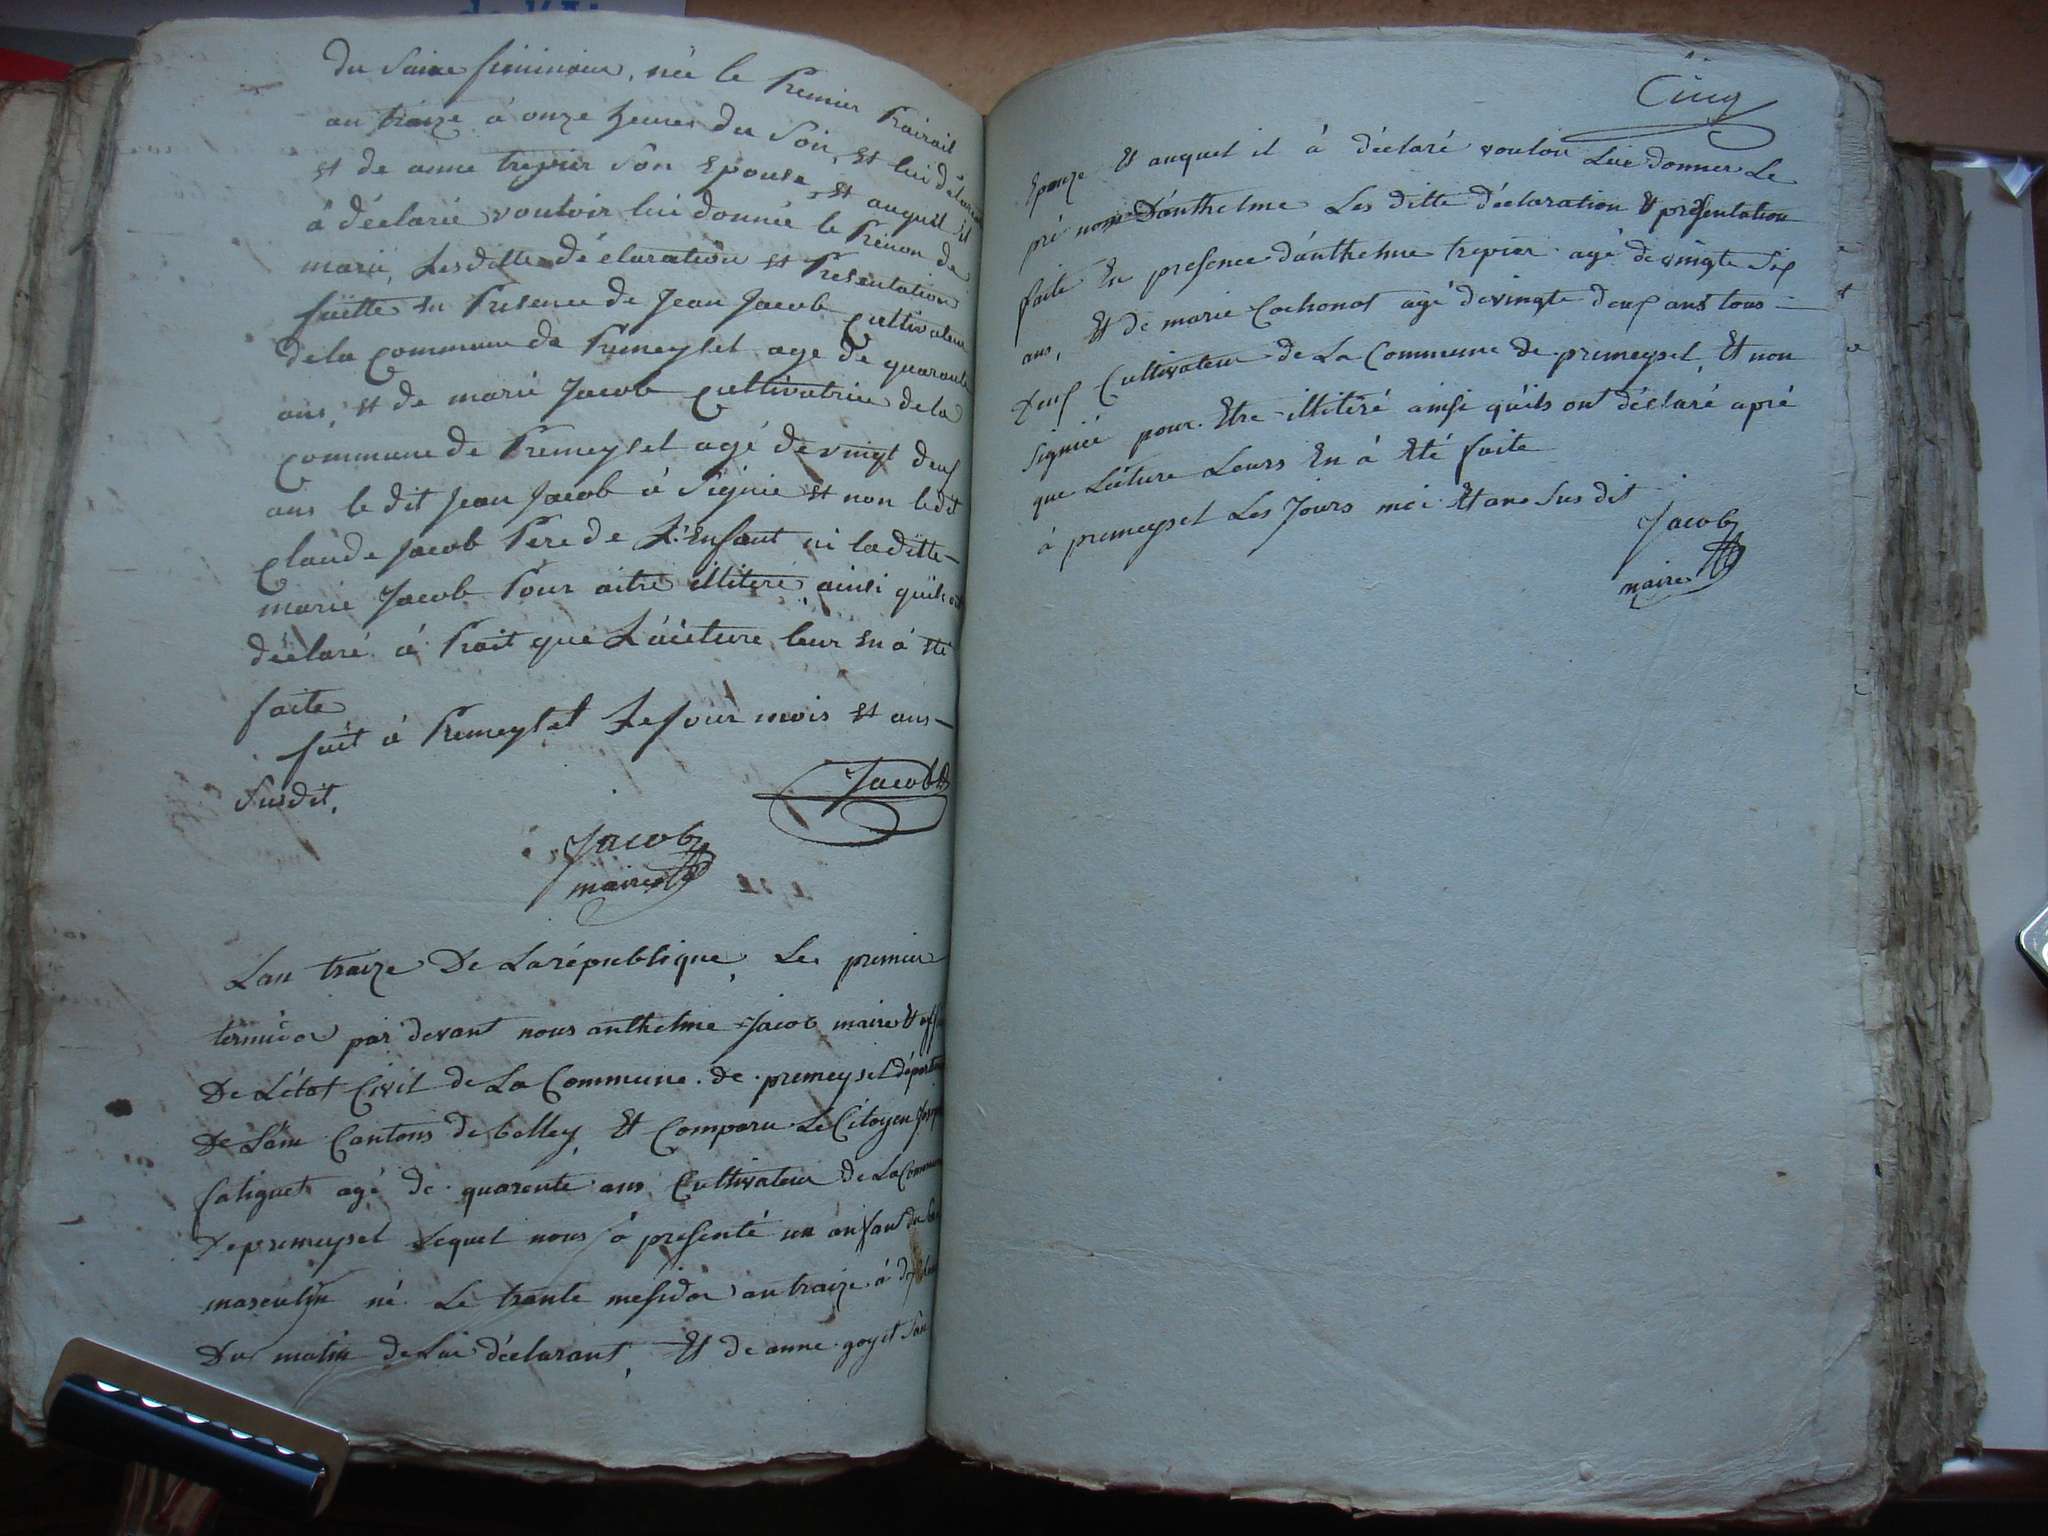 du Saixe feminin, née le Premier Prairial
an traize à onze heures du Soir, Et lui déclarant
et de anne trepier Son Epouse, et auquel il
à déclarié vouloir lui donnée le Prénon de
marie, Lesditte déclaration et Présentation
faitte en Présence de Jean Jacob Cultivateur
dela Commune de Premeyset age de quarante
ans, et de marie Jacob Cultivatrice dela
Commune de Premeyset agé de vingt deux
ans le dit Jean Jacob à Signié et non ledit
Claude Jacob Père de L'Enfant ni laditte
marie Jacob Pour aitre illiteré, ainsi quils ont
déclaré à Prait que Laicture leur en à été
faite
fait à Premeyset Le Jour mois et ans
Susdit.
Jacob
Jacob
maire
Lan traize De Larépublique, Le premier
termidor par devant nous anthelme Jacob maire Et
De Létat Civil de La Commune de premeysel départ
De Lain Cantons de belley, Et Comparu Le Citoyen
Saliguet agé de quarente ans Cultivateur de La Commune
De premeysel Lequel nous à présenté un anfant du
masculin né Le trante mesidor an traize à
Du matin de Lui déclarant, Et de anne goyet Son
Cinq
Epouze Et auquel il à déclaré vouloir Lui donner Le
pré nom D'anthelme Les ditte déclaration Et présentation
faite En presence d'anthelme trepier agé de vingte Six
ans, Et de marie Cochonat agé de vingte deux ans tous
Deux Cultivateur de La Commune de premeysel, Et non
Signiée pour Etre illitéré ainsi quils ont déclaré apré
que Lécture Leurs En à Eté faite
à premeysel Les Jours moi Et ans Sus dit
Jacob
maire